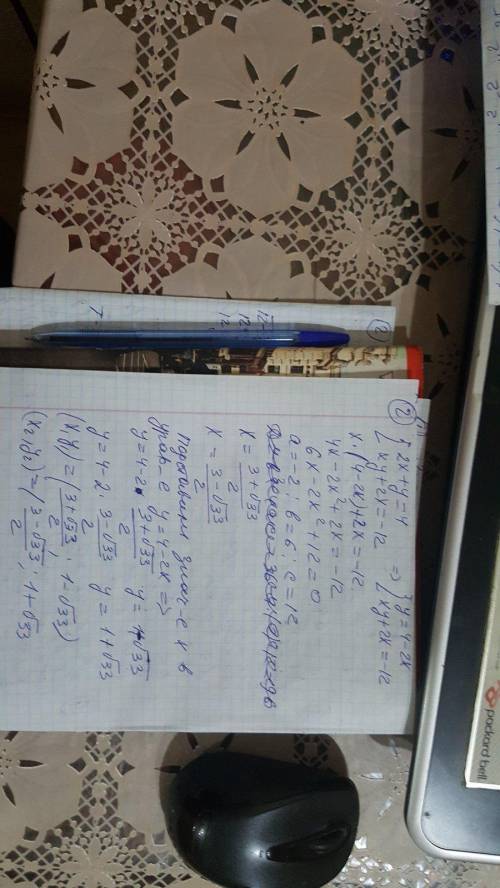 ② { 2x+y=4 => { y=4-2x
{ xy+2x=-12 { xy+2x=-12
x·(4-2x)+2x=-12
4x-2x²+2x=-12
6x-2x²+12=0
a=-2; b=6; c=12
x = (3+√33)/2
x = (3-√33)/2
Подставим знач-е x в
урав-е y=4-2x =>
y=4-2·(3+√33)/2 y=1-√33
y=4-2·(3-√33)/2 y=1+√33
(x,y)=((3+√33)/2; 1-√33)
(x₂,y₂)=((3-√33)/2; 1+√33
②
12
12
7
packard bell